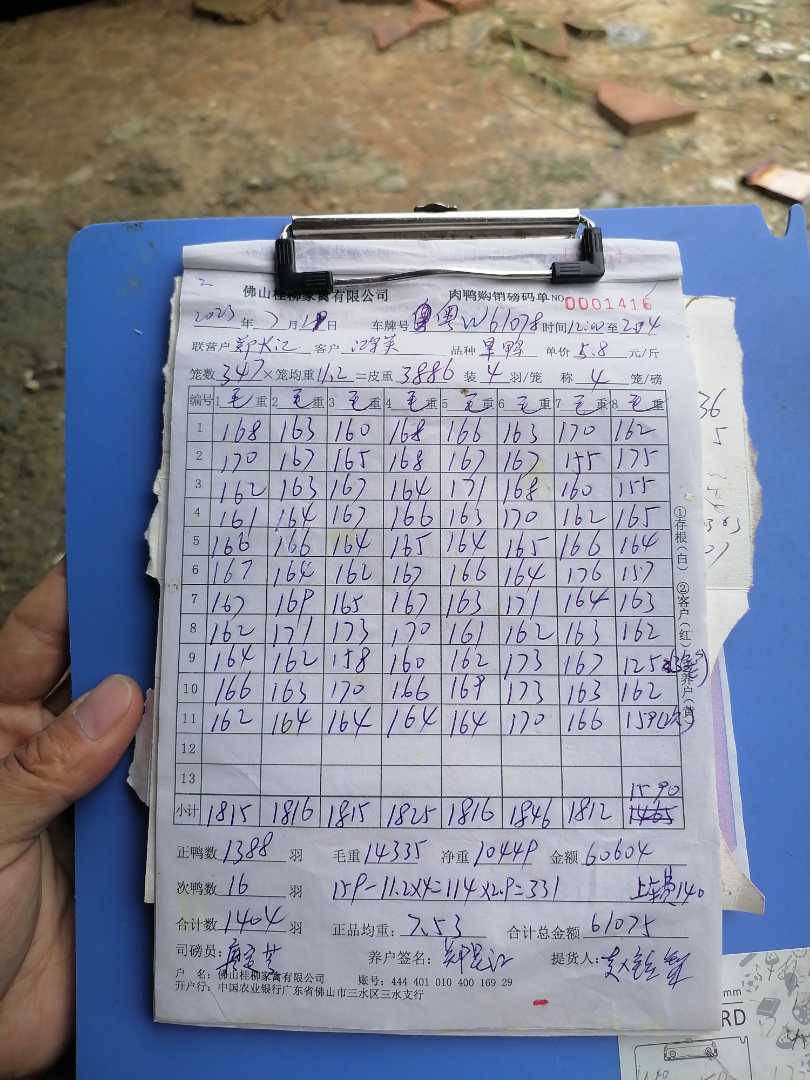 佛山桂柳家禽有限公司 肉鸭购销磅码单 NO 0001416
2023年7月 日 车牌号 粤W61078 时间12:00至2:04
联营户 客户 品种 旱鸭 单价 5.8 元/斤
笼数347×笼均重11.2=皮重3886 装4羽/笼 称4笼/磅
编号 1毛重 2毛重 3毛重 4毛重 5毛重 6毛重 7毛重 8毛重
1 168 163 160 168 166 163 170 162
2 170 167 165 168 167 167 155 175
3 162 163 167 164 171 168 160 155
4 161 164 167 166 163 170 162 165
5 166 166 164 165 164 165 166 164
6 167 164 162 167 166 164 176 157
7 167 169 165 167 163 171 164 163
8 162 171 173 170 161 162 163 162
9 164 162 158 160 162 173 167 125(3笼)
10 166 163 170 166 169 173 163 162
11 162 164 164 164 164 170 166 159(次)
12
13 1590
小计 1815 1816 1815 1825 1816 1846 1812 1465
①存根(白) ②客户(红) 养户(黄)
正鸭数1388羽 毛重14335 净重10449 金额60604
次鸭数16羽 159-11.2×4=114×2.9=331 上车费140
合计数1404羽 正品均重:7.53 合计总金额61075
司磅员: 养户签名: 提货人:
户 名:佛山桂柳家禽有限公司 账号:444 401 010 400 169 29
开户行:中国农业银行广东省佛山市三水区三水支行